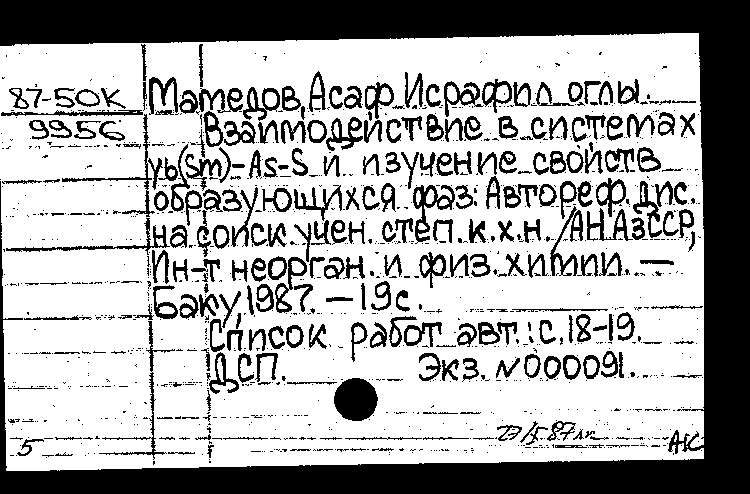 87-50К Мамедов, Асаф Исрафил оглы.
9956 Взаимодействие в системах
Yb(Sm)-As-S и изучение свойств
образующихся фаз: Автореф. дис.
на соиск. учен. степ. к.х.н. / АН АзССР,
Ин-т неорган. и физ. химии. —
Баку, 1987. — 19 с.
Список работ авт.: с. 18-19.
ДСП. Экз. N 000091.
5 АК